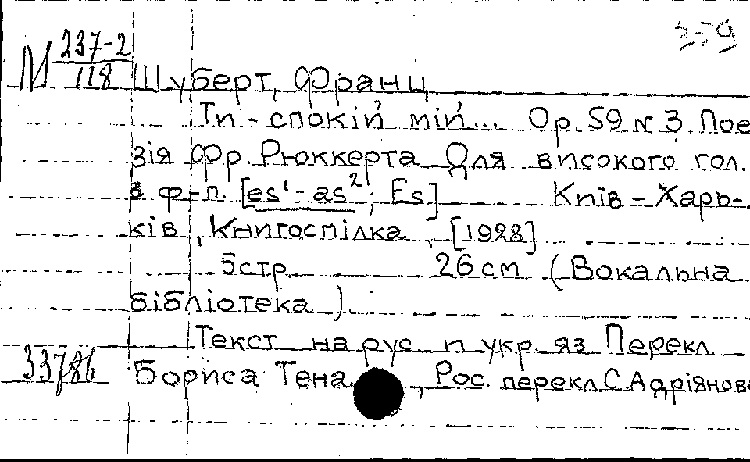 М 237-2
118
Шуберт, Франц
Ти - спокій мій... Op. 59 N 3. Пое
зія Фр. Рюккерта Для високого гол.
з ф-п. [es¹-as²; Es] Київ - Харь-
ків, Книгоспілка, [1928]
5 стр 26 см (Вокальна
бібліотека).
Текст на рус и укр. яз Перекл
33786 Бориса Тена, Рос. перекл. С. Адріянова